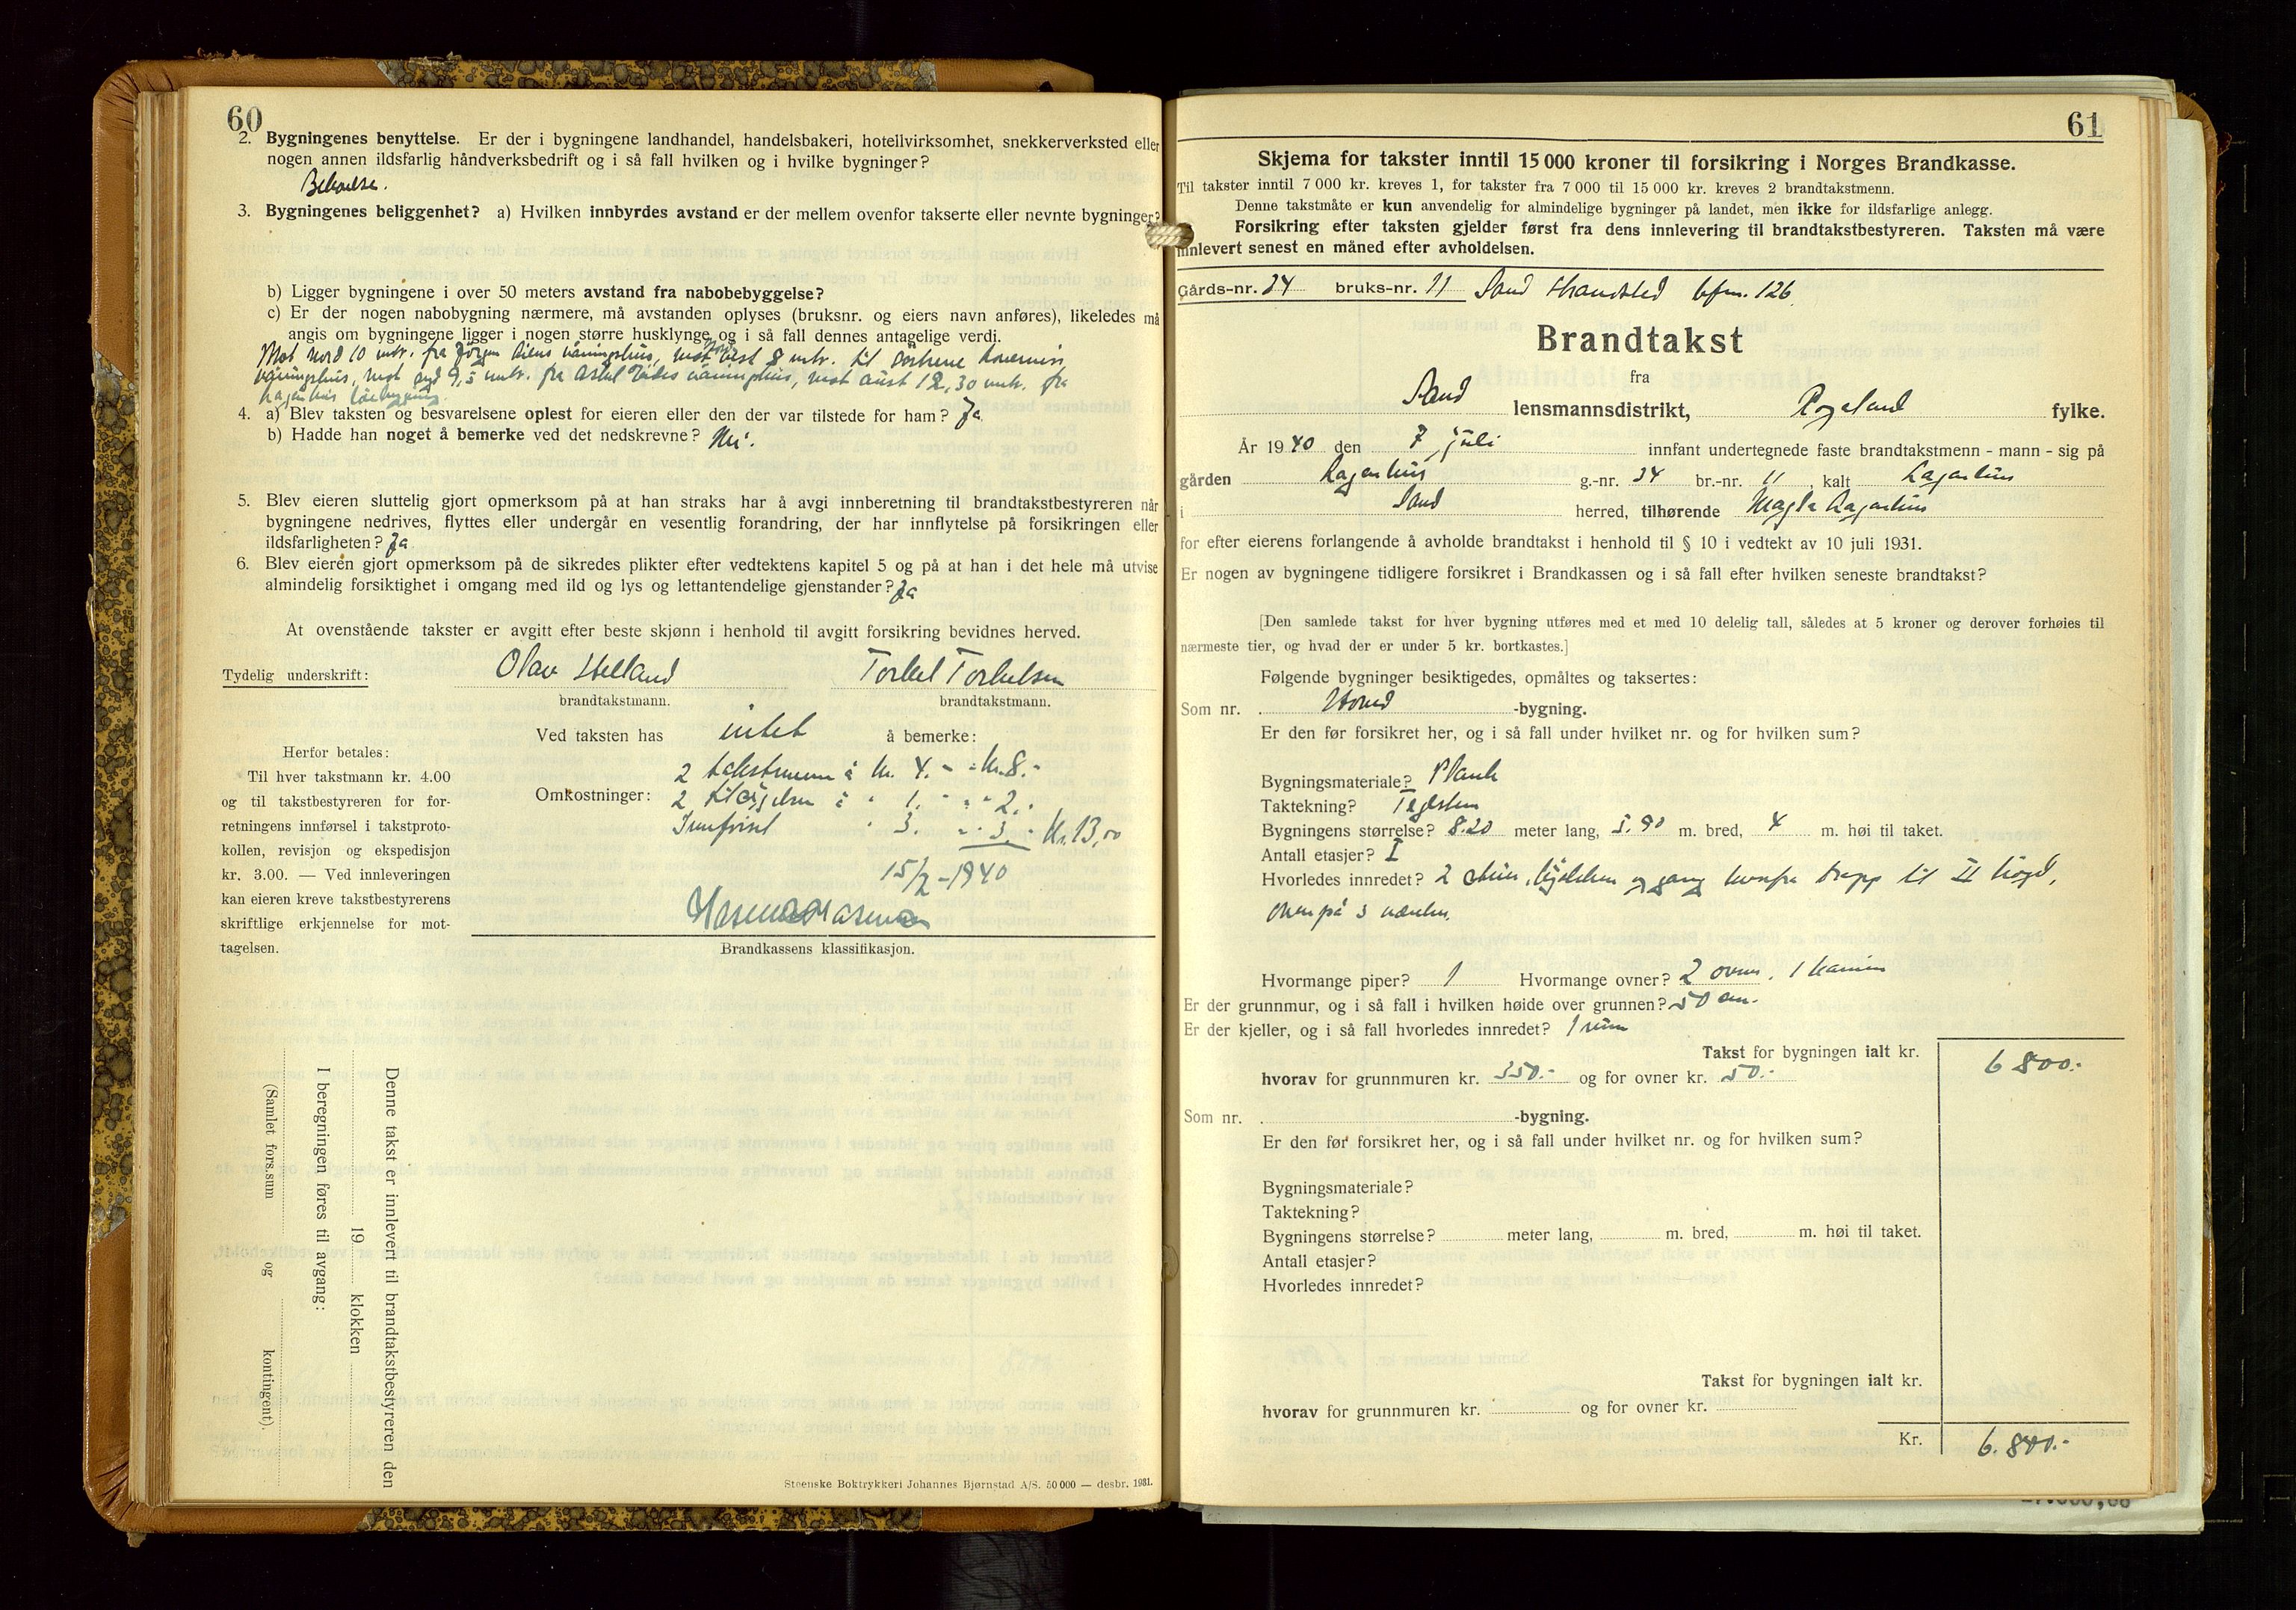 60
2. Bygningenes benyttelse. Er der i bygningene landhandel, handelsbakeri, hotellvirksomhet, snekkerverksted eller
nogen annen ildsfarlig håndverksbedrift og i så fall hvilken og i hvilke bygninger?
3. Bygningenes beliggenhet? a) Hvilken innbyrdes avstand er der mellem ovenfor takserte eller nevnte bygninger?
b) Ligger bygningene i over 50 meters avstand fra nabobebyggelse?
c) Er der nogen nabobygning nærmere, må avstanden oplyses (bruksnr. og eiers navn anføres), likeledes må
angis om bygningene ligger i nogen større husklynge og i så fall dennes antagelige verdi.
Mot nord 10 mtr. fra Jörgen våningshus, mot vest 8 mtr. til
våningshus, mot syd 9,5 mtr. fra våningshus, mot aust 12,30 mtr. fra
4. a) Blev taksten og besvarelsene oplest for eieren eller den der var tilstede for ham? Ja
b) Hadde han noget å bemerke ved det nedskrevne? Nei.
5. Blev eieren sluttelig gjort opmerksom på at han straks har å avgi innberetning til brandtakstbestyreren når
bygningene nedrives, flyttes eller undergår en vesentlig forandring, der har innflytelse på forsikringen eller
ildsfarligheten? Ja
6. Blev eieren gjort opmerksom på de sikredes plikter efter vedtektens kapitel 5 og på at han i det hele må utvise
almindelig forsiktighet i omgang med ild og lys og lettantendelige gjenstander? Ja
At ovenstående takster er avgitt efter beste skjønn i henhold til avgitt forsikring bevidnes herved.
Tydelig underskrift: Olav Helland Torkel Torkelsen
brandtakstmann. brandtakstmann.
Ved taksten has intet å bemerke:
Herfor betales:
Til hver takstmann kr. 4.00
og til takstbestyreren for for-
retningens innførsel i takstproto-
kollen, revisjon og ekspedisjon
kr. 3.00. — Ved innleveringen
kan eieren kreve takstbestyrerens
skriftlige erkjennelse for mot-
tagelsen.
2 takstmenn à kr. 4.- = kr. 8.-
Omkostninger: 2 à " 1. - " 2.-
" 3. - " 3.- Kr. 13,00
15/2-1940
Brandkassens klassifikasjon.
Denne takst er innlevert til brandtakstbestyreren den
19 klokken
I beregningen føres til avgang:
(Samlet fors.sum og kontingent).
Steenske Boktrykkeri Johannes Bjørnstad A/S. 50 000 — desbr. 1931.
61
Skjema for takster inntil 15 000 kroner til forsikring i Norges Brandkasse.
Til takster inntil 7 000 kr. kreves 1, for takster fra 7 000 til 15 000 kr. kreves 2 brandtakstmenn.
Denne takstmåte er kun anvendelig for almindelige bygninger på landet, men ikke for ildsfarlige anlegg.
Forsikring efter taksten gjelder først fra dens innlevering til brandtakstbestyreren. Taksten må være
innlevert senest en måned efter avholdelsen.
Gårds-nr. 34 bruks-nr. 11 Sand strandsted bfnr. 126
Brandtakst
fra
Sand lensmannsdistrikt, Rogaland fylke.
År 1940 den 7 juli innfant undertegnede faste brandtakstmenn - mann - sig på
gården Lagarhus g.-nr. 34 br.-nr. 11, kalt Lagarhus
i Sand herred, tilhørende Magla Lagarhus
for efter eierens forlangende å avholde brandtakst i henhold til § 10 i vedtekt av 10 juli 1931.
Er nogen av bygningene tidligere forsikret i Brandkassen og i så fall efter hvilken seneste brandtakst?
[Den samlede takst for hver bygning utføres med et med 10 delelig tall, således at 5 kroner og derover forhøies til
nærmeste tier, og hvad der er under 5 kr. bortkastes.]
Følgende bygninger besiktigedes, opmåltes og taksertes:
Som nr. Hoved -bygning.
Er den før forsikret her, og i så fall under hvilket nr. og for hvilken sum?
Bygningsmateriale? Plank
Taktekning? Teglsten
Bygningens størrelse? 8.20 meter lang, 5.90 m. bred, 4 m. høi til taket.
Antall etasjer? I
Hvorledes innredet? 2 stuer, kjøkken og gang hvorfra trapp til II høgd,
ovenpå 3 værelser.
Hvormange piper? 1 Hvormange ovner? 2 ovner, 1 kamin
Er der grunnmur, og i så fall i hvilken høide over grunnen? 50 cm.
Er der kjeller, og i så fall hvorledes innredet? 1 rum
Takst for bygningen ialt kr. 6 800.-
hvorav for grunnmuren kr. 350.- og for ovner kr. 50.-
Som nr. -bygning.
Er den før forsikret her, og i så fall under hvilket nr. og for hvilken sum?
Bygningsmateriale?
Taktekning?
Bygningens størrelse? meter lang, m. bred, m. høi til taket.
Antall etasjer?
Hvorledes innredet?
Takst for bygningen ialt kr.
hvorav for grunnmuren kr. og for ovner kr.
Kr. 6.800.-